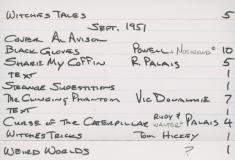 WITCHES TALES 5
SEPT. 1951
COVER AL AVISON
BLACK GLOVES POWELL + NOSTRAND 10
SHARE MY COFFIN R. PALAIS 5
TEXT 1
STRANGE SUPESTITIONS 1
THE CLINGING PHANTOM VIC DONAHUE 7
TEXT 1
CURSE OF THE CATERPILLAR RUDY & WALTER PALAIS 4
WITCHES TRICKS TOM HICKEY 1
WEIRD WORLDS ? 1